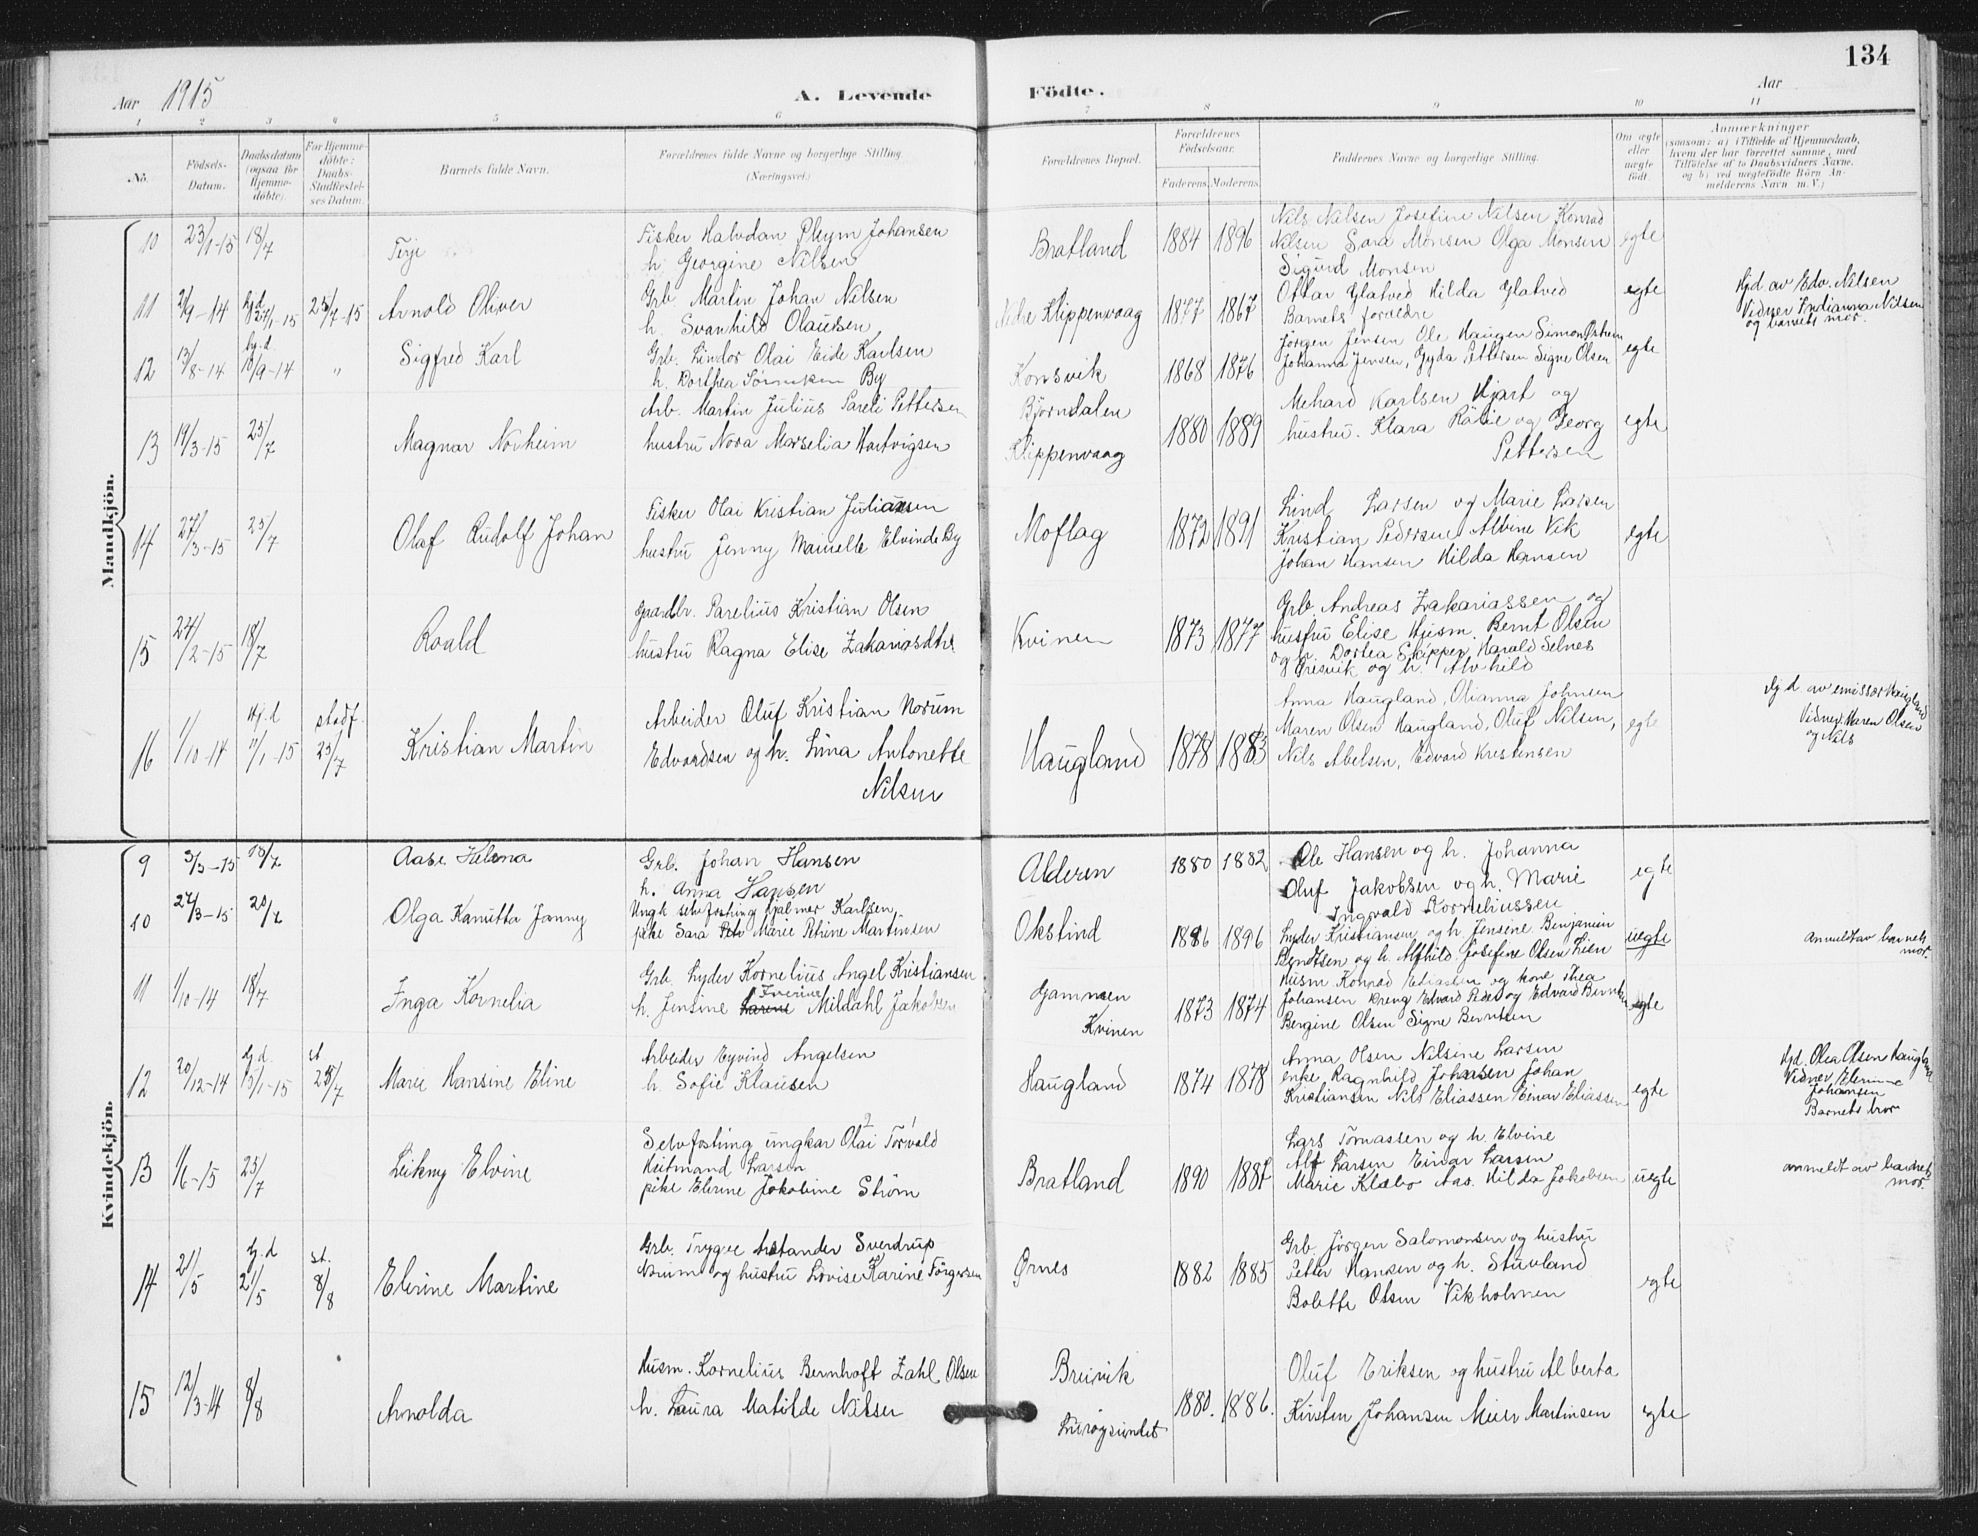 134
Aar 1915
A. Levende
Födte.
Aar
1 2 3 4 5 6 7 8 9 10 11
No.
Födsels-
Datum.
Daabsdatum
(ogsaa for
Hjemme-
döbte).
For Hjemme-
döbte:
Daabs-
Stadfæstel-
ses Datum.
Barnets fulde Navn.
Forældrenes fulde Navne og borgerlige Stilling.
(Næringsvei.)
Forældrenes Bopæl.
Forældrenes
Födselsaar.
Faderens. Moderens.
Faddernes Navne og borgerlige Stilling.
Om ægte
eller
uægte
födt.
Anmærkninger
(saasom: a) i Tilfælde af Hjemmedaab,
hvem der har forrettet samme, med
Tilföielse af to Daabsvidners Navne,
og b) ved uægtefödte Börn An-
melderens Navn m. V.)
Mandkjön.
10 23/1-15 18/7 Terje
Fisker Halvdan Pleym Johansen
h. Georgine Nilsen
Bratland 1884 1896
Nils Nilsen Josefine Nilsen Konrad
Nilsen Sara Monsen Olga Monsen
Sigurd Monsen
egte
11 2/9-14 hjd 24/1-15 25/7-15 Arnold Oliver
Grb. Martin Johan Nilsen
h. Svanhild Olausen
Nedre Klippenvaag 1877 1867
Ottar Glatved Hilda Glatved
Barnets forældre
egte
Hjd av Edv. Nilsen
Vidner Indianna Nilsen
og barnets mor.
12 13/8-14 hj.d. 10/9-14 " Sigfred Karl
Grb. Lindor Olai Eide Karlsen
h. Dorthea By
Konsvik 1868 1876
Jörgen Jensen Ole Haugen Simon
Johanna Jensen, Gyda Pettersen Signe Olsen
egte
13 19/3-15 25/7 Magnar Norheim
Arb. Martin Julius Pareli Pettersen
hustru Nora Marselia Hartvigsen
Björndalen
Klippenvaag
1880 1889
Mehard Karlsen Hjart og
hustru. Klara og Georg
Pettersen
egte
14 27/3-15 25/7 Olaf Rudolf Johan
Fisker Olai Kristian Juliansen
hustru Jenny Elvinde By
Moflag 1872 1891
Lind Larsen og Marie Larsen
Kristian Pedersen Albine Vik
Johan Hansen Hilda Hansen
egte
15 24/2-15 18/7 Roald
Gaardbr. Parelius Kristian Olsen
hustru Ragna Elise Zakariasdtr.
Kvinen 1873 1877
Grb. Andreas Zakariassen og
hustru Elise Husm. Bernt Olsen
og h. Dortea Skipper Harald Selnes
og h. Alvhild
egte
16 1/10-14 Hj.d 17/1-15 stadf. 25/7 Kristian Martin
Arbeider Oluf Kristian Norum
Edvardsen og h. Lina Antonette
Nilsen
Haugland 1878 1883
Anna Haugland, Olianna Johnsen
Maren Olsen Haugland, Oluf Nilsen,
Nils Abelsen, Edvard Kristensen
egte
Hjd. av emissær Haugland
Vidner, Maren Olsen
og Nils
Kvindekjön.
9 3/3-15 18/7 Aase Helena
Grb. Johan Hansen
h. Anna Hansen
Alderen 1880 1882
Ole Hansen og h. Johanna
Oluf Jakobsen og h. Marie
Ingvald Korneliussen
egte
10 27/3-15 20/7 Olga Kamitta Janny
Ungk selvfostring Hjalmer Karlsen,
pike Sara Marie Petrine Martinsen
Okstind 1886 1896
Lyder Kristiansen og h. Jensine Benjamin
Berntsen og h. Alfhild. Josefine Olsen Lien
uegte
Anmeldt av barnets
mor.
11 1/10-14 18/7 Inga Kornelia
Grb. Lyder Kornelius Angel Kristiansen
h. Jensine Mildahl Jakobsen
Gammen
Kvinen
1873 1874
Husm Konrad Eliassen og kone Thea
Johansen Edvard og Edvard Berntsen
Bergine Olsen Signe Berntsen
egte
12 20/12-14 hj.d. 13/1-15 st 25/7 Marie Hansine Eline
Arbeider Eyvind Angelsen
h. Sofie Klausen
Haugland 1874 1878
Anna Olsen Nilsine Larsen
enke Ragnhild Johansen Johan
Kristiansen Nils Eliassen Einar Eliassen
egte
Hjd. Olea Olsen Haugland
Vidner Elerinne
Johansen
Barnets mor
13 1/6-15 25/7 Leikny Elvine
Selvfostring ungkar Olai Torvald
Heitmand Larsen
pike Elerine Jakobine Ström
Bratland 1890 1887
Lars Tomassen og h. Elvine
Alf Larsen Einar Larsen
Marie Klæbo Aas. Hilda Jakobsen
uegte
anmeldt av barnets
mor.
14 21/5 hj.d 21/5 st. 8/8 Elerine Martine
Grb. Trygve Sverdrup
og hustru Lovise Karine Jörgensen
Ørnes 1882 1885
Grb. Jörgen Salomonsen og hustru
Petter Hansen og h. Stuvland
Bolette Olsen Vikholmen
egte
15 12/3-14 8/8 Arnolda
Husm. Kornelius Bernhoft Zahl Olsen
h. Laura Matilde Nilsen
Breivik
Luröysundet
1880. 1886.
Oluf Eriksen og hustru Alberta
Kirsten Johansen Meier Martinsen
egte